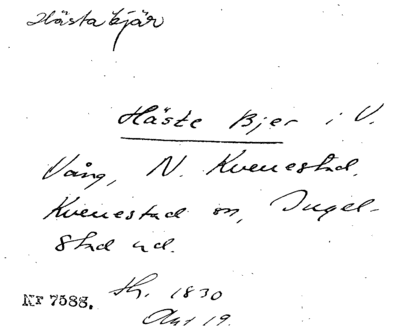 Hästakjär
Häste Bjer i V.
Vång, N. Kvenestad,
Kvenestad sn, Ingel-
stad hd.
Nr 7588. Sk. 1830
Akt 19.